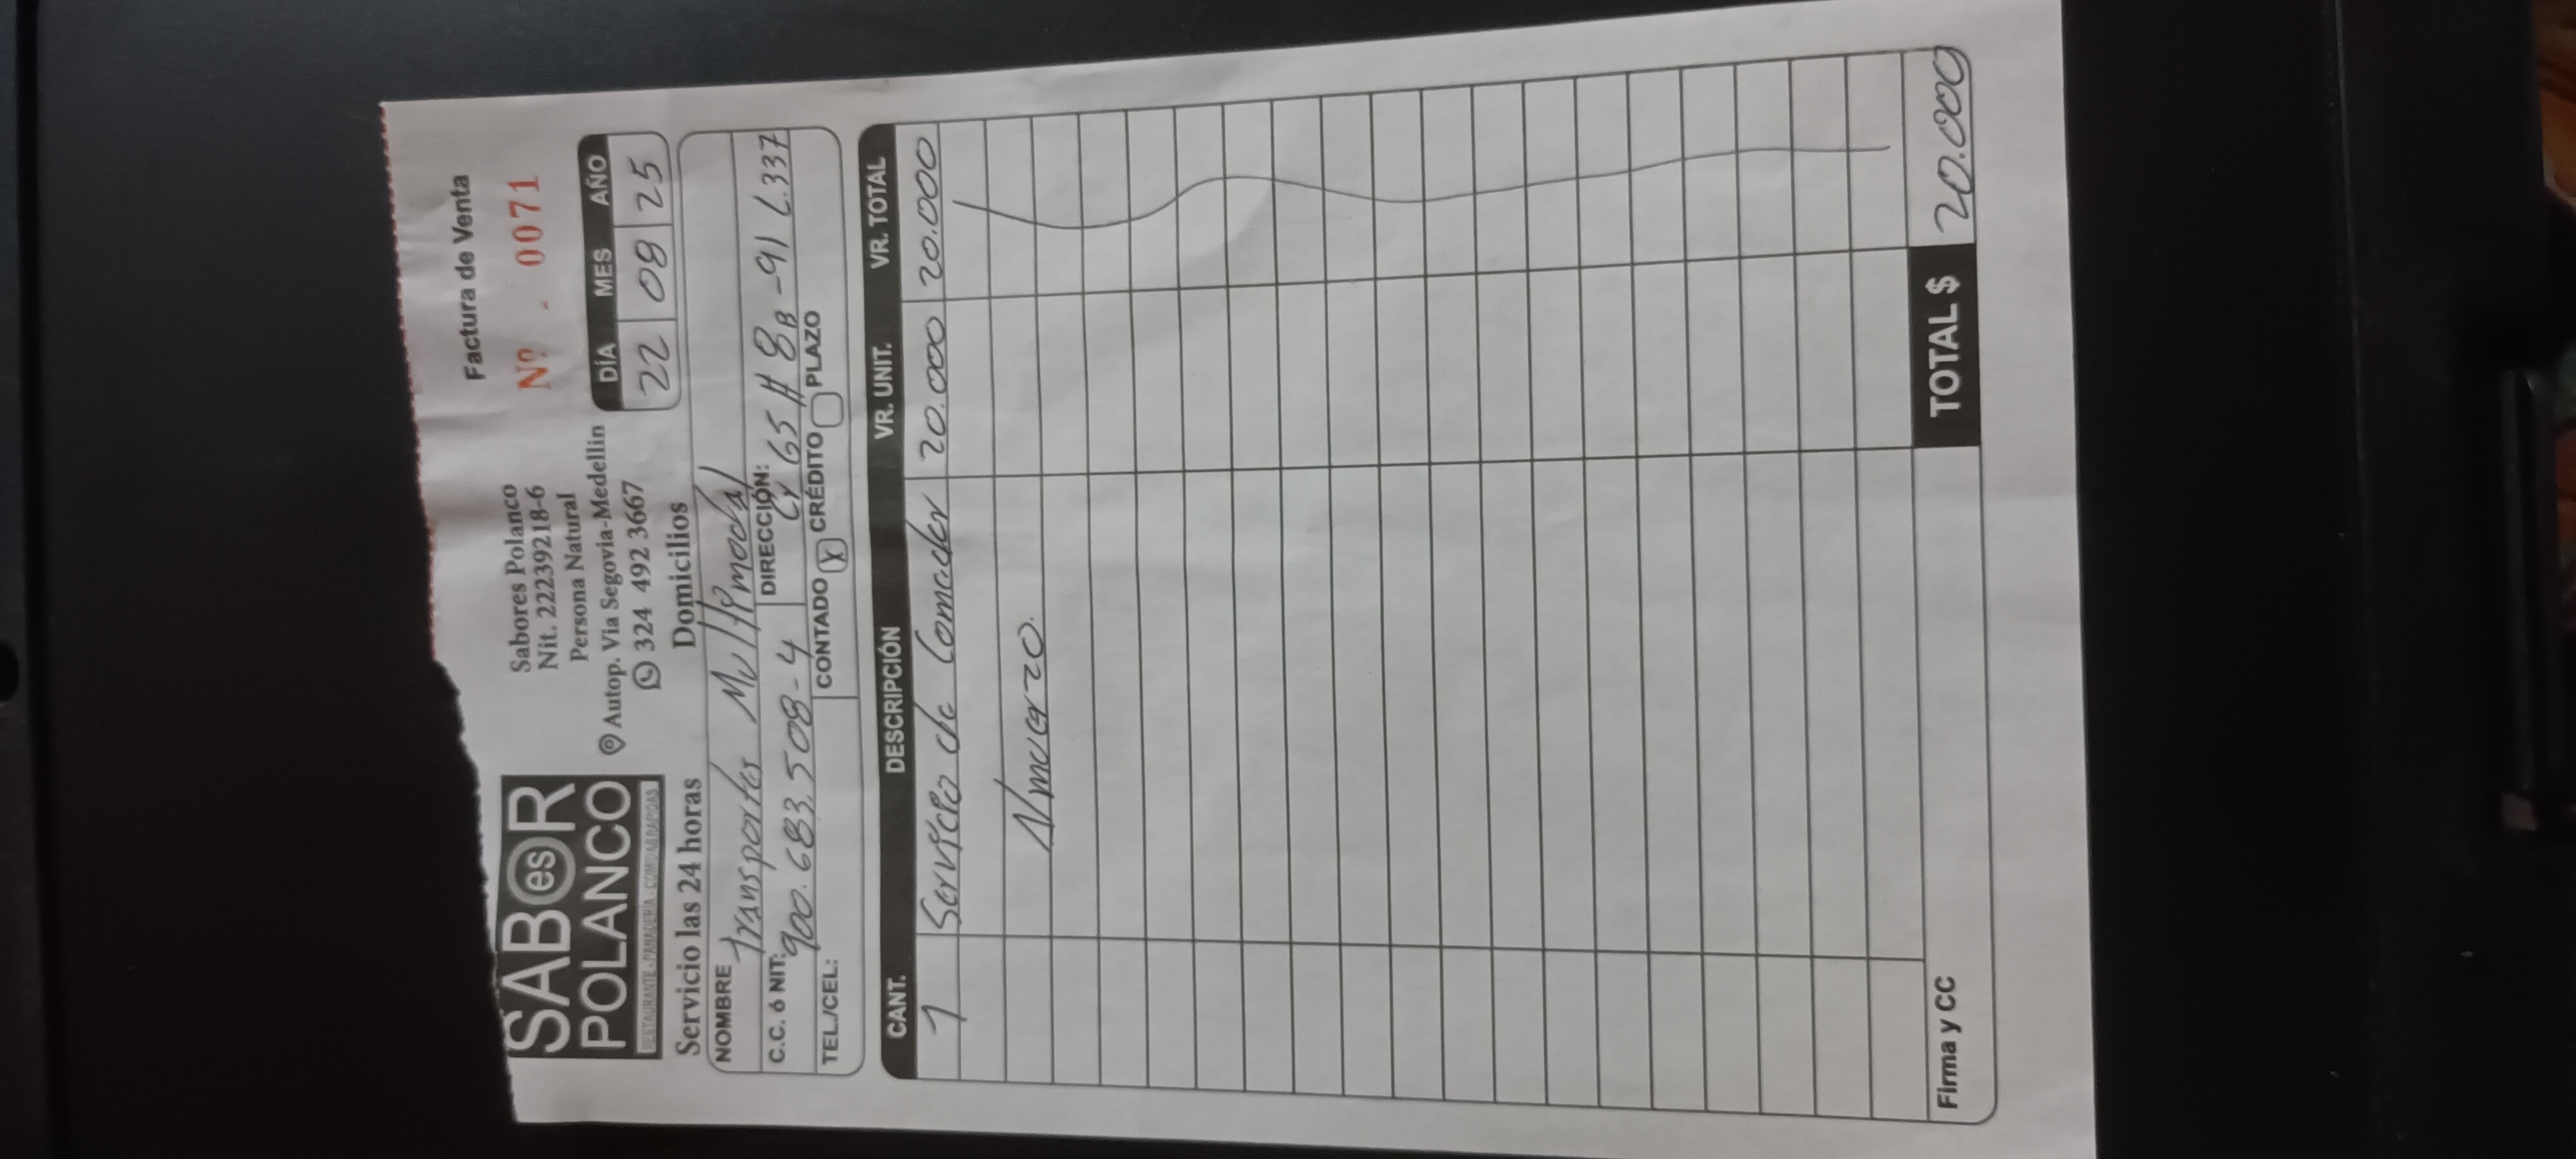 SABesR
POLANCO
RESTAURANTE - PANADERÍA - COMIDAS RÁPIDAS
Sabores Polanco
Nit. 22239218-6
Persona Natural
Autop. Via Segovia-Medellin
324 492 3667
Factura de Venta
Nº - 0071
DÍA MES AÑO
22 08 25
Servicio las 24 horas Domicilios
NOMBRE Transportes Multimodal
C.C. ó NIT: 900.683.508-4 DIRECCIÓN: Cr 65 # 8B-91 L.337
TEL./CEL: CONTADO X CRÉDITO PLAZO
CANT. DESCRIPCIÓN VR. UNIT. VR. TOTAL
1 Servicio de Comedor 20.000 20.000
Almuerzo.
Firma y CC TOTAL $ 20.000